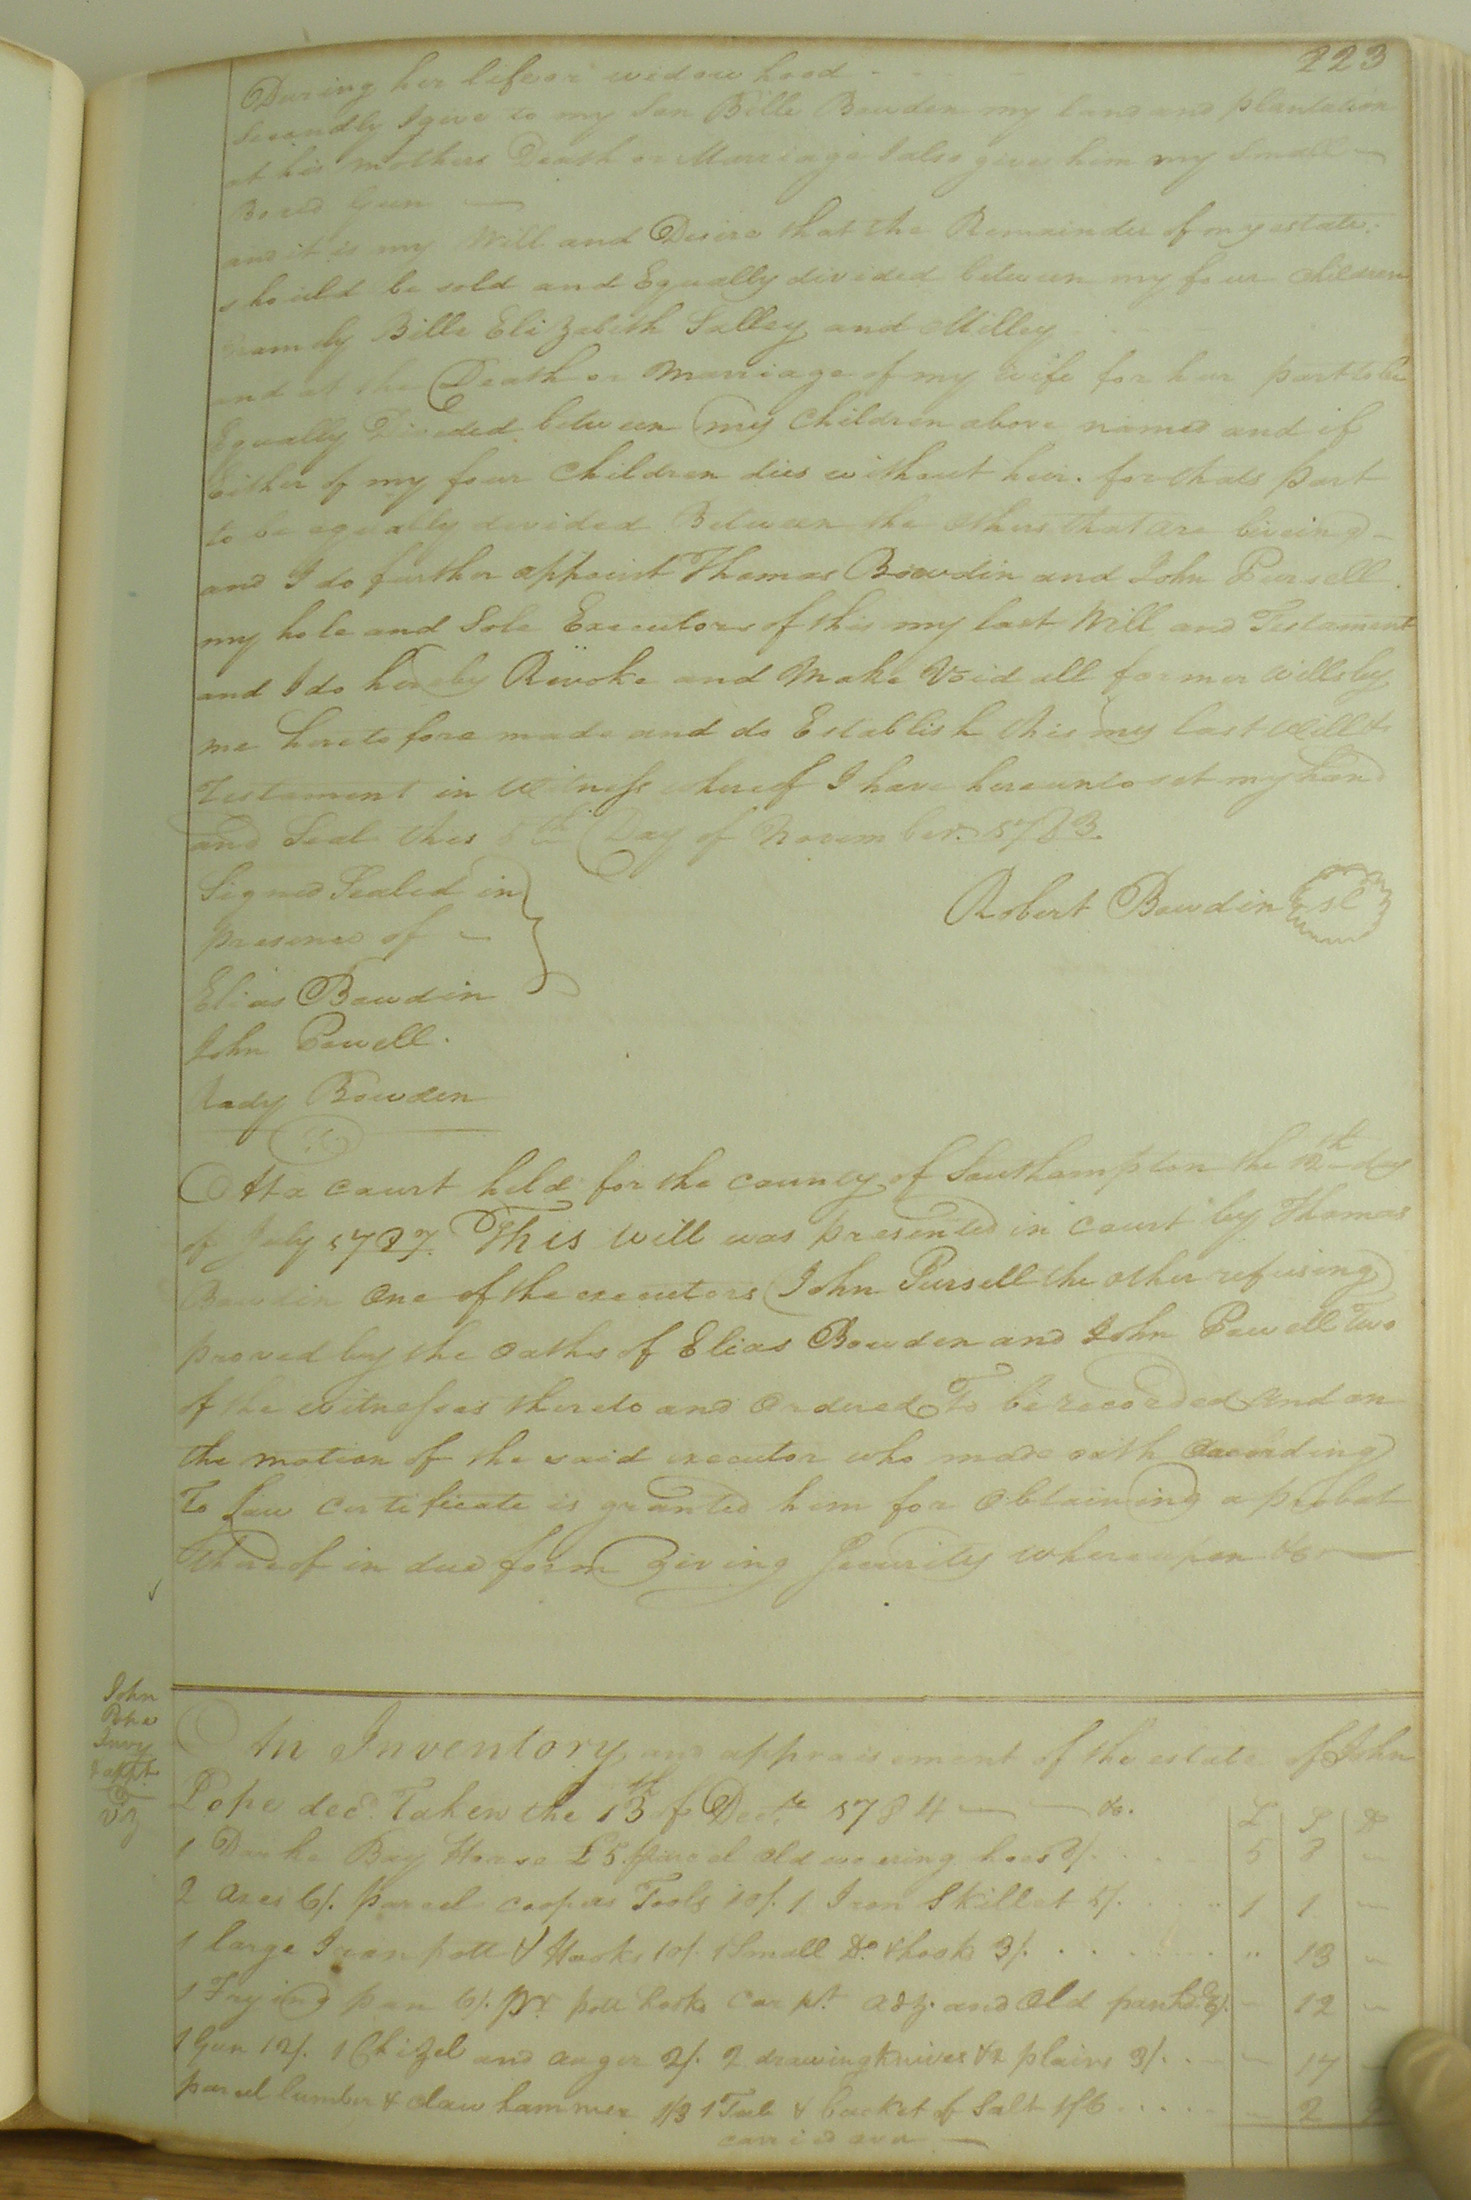 223
During her life or widow hood
Secondly I give to my Son Bille Bowden my land and plantation
at his mothers Death or Marriage I also gives him my Small
Bored Gun
and it is my Will and Desire that the Remainder of my estate
should be sold and Equally divided between my four children
namely Bille Elizabeth Salley and Milley
and at the Death or Marriage of my wife for her part to be
Equally Divided between my children above named and if
Either of my four children dies without heir. for thats part
to be equally devided Between the others that are liveing
and I do further appoint Thomas Bowdin and John Pursell
my hole and Sole Executors of this my last Will and Testament
and I do hereby Revoke and Make Void all former wills by
me heretofore made and do Establish this my last will &
Testament in Witness whereof I have hereunto set my hand
and Seal this 5th Day of November 1783.
Signed Sealed in
presence of
Robert Bowdin sl
Elias Bowdin
John Powell.
Bowden
At a court held for the county of Southampton the 12th day
of July 1787. This will was presented in court by Thomas
Bowdin One of the executors John Pursell the other refusing
proved by the oaths of Elias Bowden and John Powell Two
of the witnesses thereto and Ordered To be recorded And on
the motion of the said executor who made oath According
To Law certificate is granted him for Obtaining a probat
thereof in due form giving Security whereupon &c
John
Pope
Invy
& appt
An Inventory and appraisement of the estate of John
Pope decd. Taken the 13th of Decr. 1784 &c.
£ S D
1 Darke Bay Horse £5. parcel old weering hoes 3/. 5 3
2 axes 6/. parcel coopers Tools 10/. 1 Iron Skillet 5/. 1 1
1 large Iron pott & Hooks 10/. 1 Small Do. & hooks 3/. 13
1 Frying pan 6/. pr pott hooks carpt. adz. and Old 12
1 Gun 12/. 1 Chizel and auger 2/. 2 drawing knives & 2 plains 3/. 17
parcel lumber & claw hammer 1/3 1 Tub & of Salt 1/6 2 9
carried over